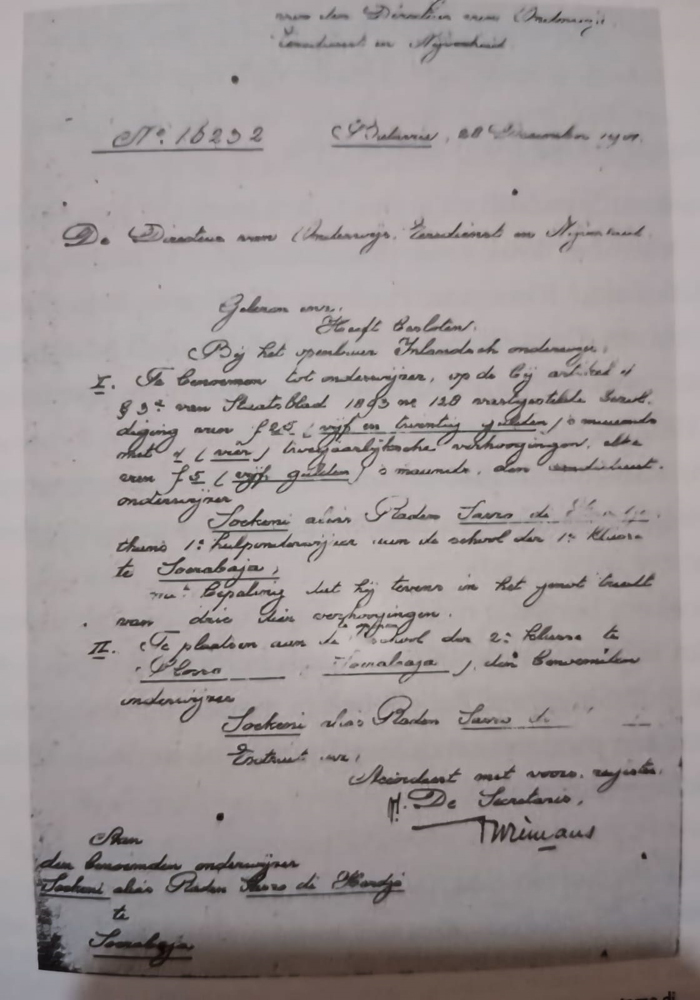 van den Directeur van Onderwijs
Eeredienst en Nijverheid.
No. 16232 Batavia, 28 December 1901.
De Directeur van Onderwijs, Eeredienst en Nijverheid.
Gelezen enz.
Heeft besloten.
Bij het openbaar Inlandsch onderwijs.
I. Te benoemen tot onderwijzer, op de bij artikel
§ 3e van Staatsblad 1893 no 128 vastgestelde bezol
diging van f 25 (vijf en twentig gulden) 's maands
met 4 (vier) tweejaarlijksche verhoogingen, elke
van f 5 (vijf gulden) 's maands, den
onderwijzer
Soekeni alias Raden Sosro di
thans 1e hulponderwijzer aan de school der 1e klasse
te Soerabaja,
met bepaling dat hij tevens in het genot treedt
van drie dier verhoogingen.
II. Te plaatsen aan de school der 2e klasse te
Ploso Soerabaja), den benoemden
onderwijzer
Soekeni alias Raden Sosro di
Extract enz.
Accordeert met voors. register.
De Secretaris,
Aan
den benoemden onderwijzer
Soekeni alias Raden Sosro di Hardjo
te
Soerabaja